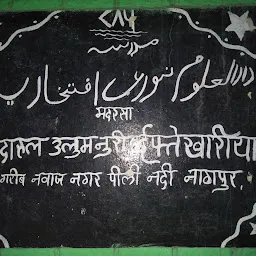 ۷۸۶
مدرسہ
دارالعلوم نوری افتخاریہ
मदरसा
दारुल उलुम नुरी ईफ्तेखारीया
गरीब नवाज नगर पीली नदी नागपुर.